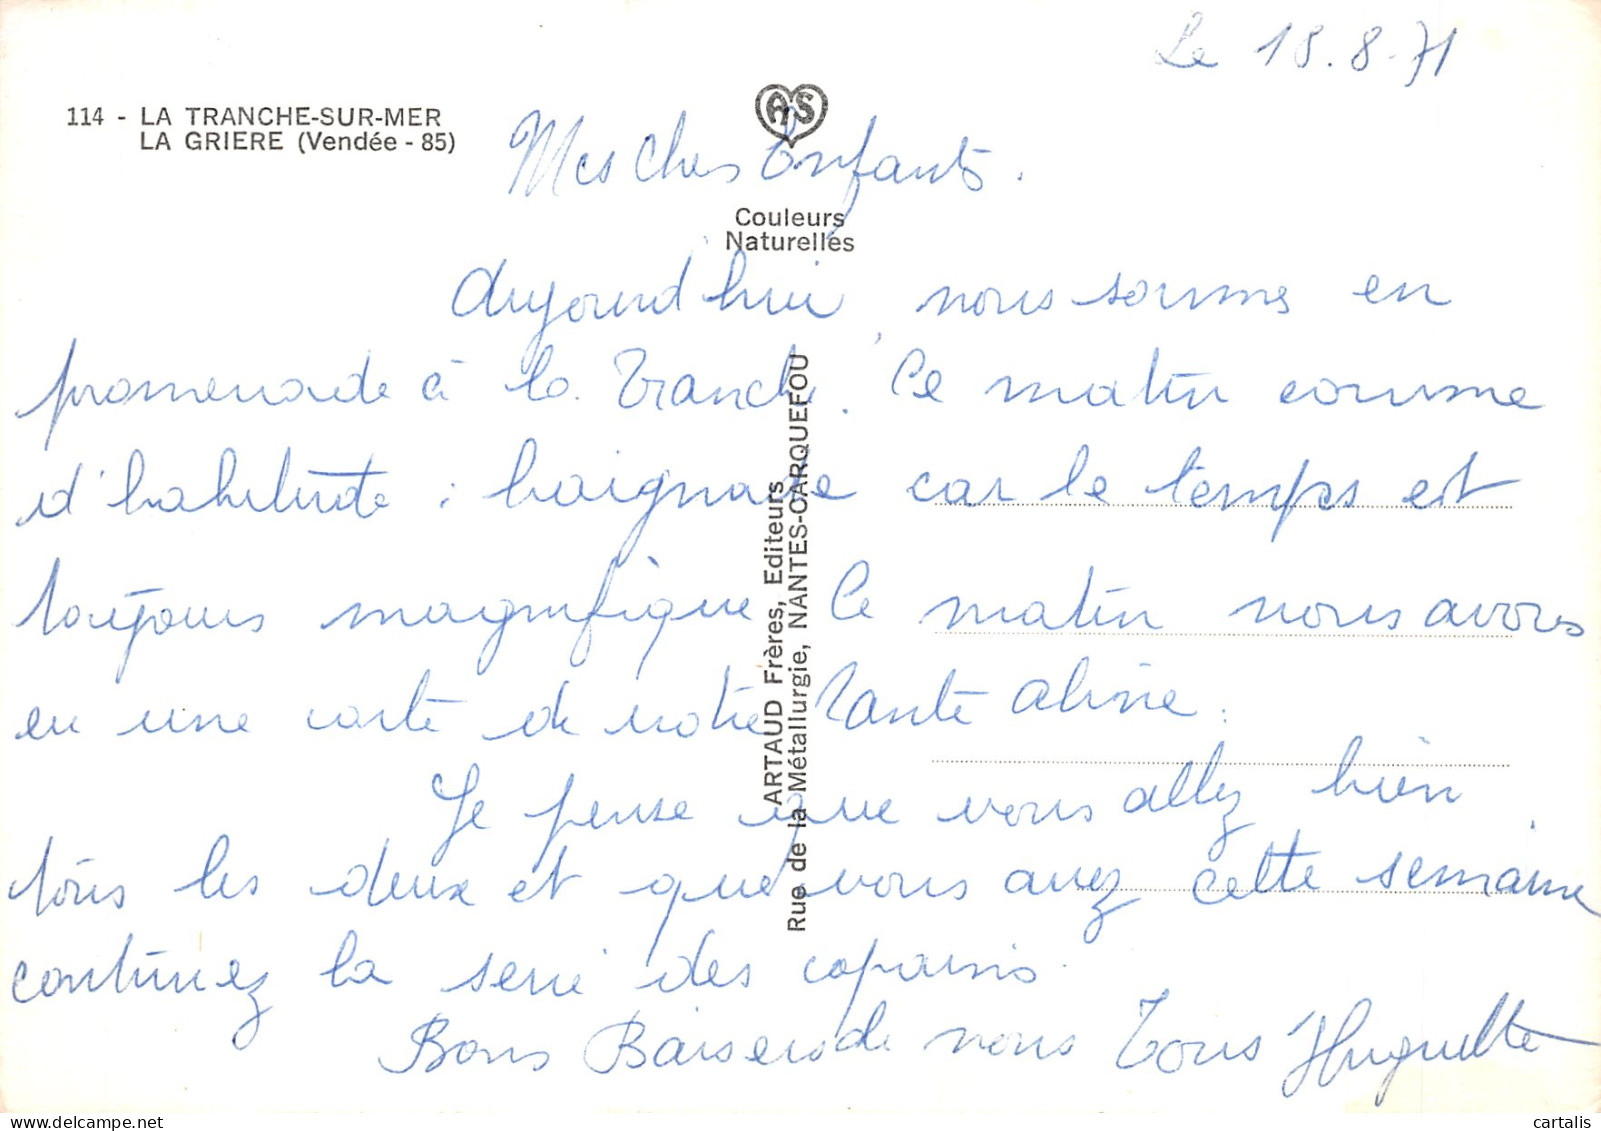 Le 18.8.71
114 - LA TRANCHE-SUR-MER
LA GRIERE (Vendée - 85)
AS
Mes Chers Enfants.
Couleurs
Naturelles
Aujourd'hui, nous sommes en
promenade à la Tranche. Ce matin comme
d'habitude : baignade car le temps est
toujours magnifique Ce matin nous avons
eu une carte de notre Tante Aline.
Je pense que vous allez bien
tous les deux et que vous avez cette semaine
continuez la serie des copains.
Bons Baisers de nous Tous Huguette
ARTAUD Frères, Editeurs
Rue de la Métallurgie, NANTES-CARQUEFOU
cartalis